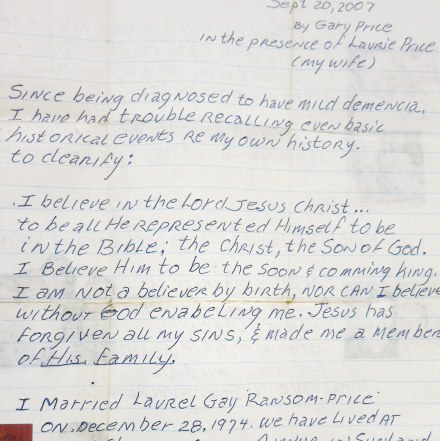 Sept 20, 2007
By Gary Price
in the presence of Laurie Price
(my wife)
Since being diagnosed to have mild demencia,
I have had trouble recalling even basic
historical events re my own history.
to clearify:
I believe in the Lord Jesus Christ...
to be all He represented Himself to be
in the Bible; the Christ, the Son of God.
I Believe Him to be the soon & comming King.
I am not a believer by birth, nor can I believe
without God enabeling me. Jesus has
forgiven all my sins, & made me a member
of His family.
I Married Laurel Gay Ransom-Price
on December 28, 1974. We have lived at